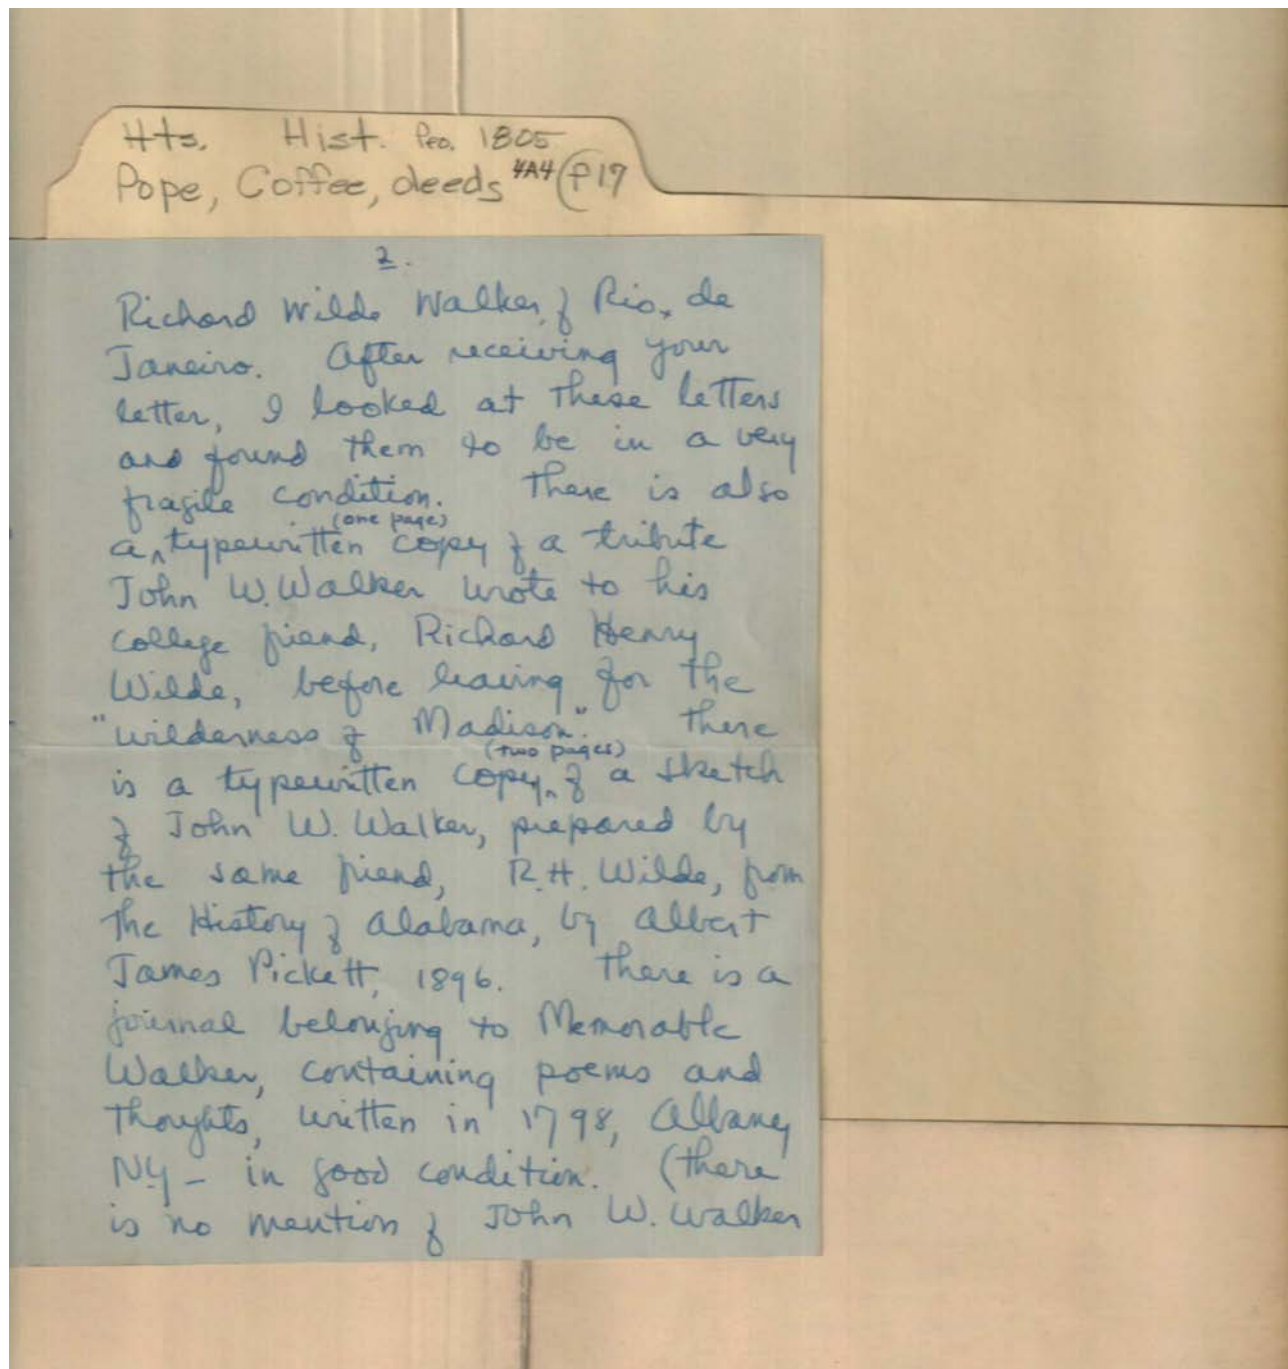 Hts. Hist. Peo. 1805
Pope, Coffee, deeds 4A4 P17
2.
Richard Wilde Walker, of Rio, de
Janeiro. After receiving your
letter, I looked at these letters
and found them to be in a very
fragile condition. There is also
(one page)
a typewritten copy of a tribute
John W. Walker wrote to his
college friend, Richard Henry
Wilde, before leaving for the
"wilderness of Madison". There
(two pages)
is a typewritten copy, of a sketch
of John W. Walker, prepared by
the same friend, R.H. Wilde, from
the History of Alabama, by Albert
James Pickett, 1896. There is a
journal belonging to Memorable
Walker, containing poems and
thoughts, written in 1798, Albany
NY - in good condition. (There
is no mention of John W. Walker